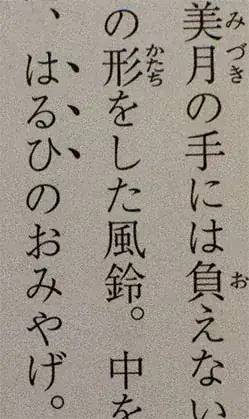 美月の手には負えない
の形をした風鈴。中を
、はるひのおみやげ。